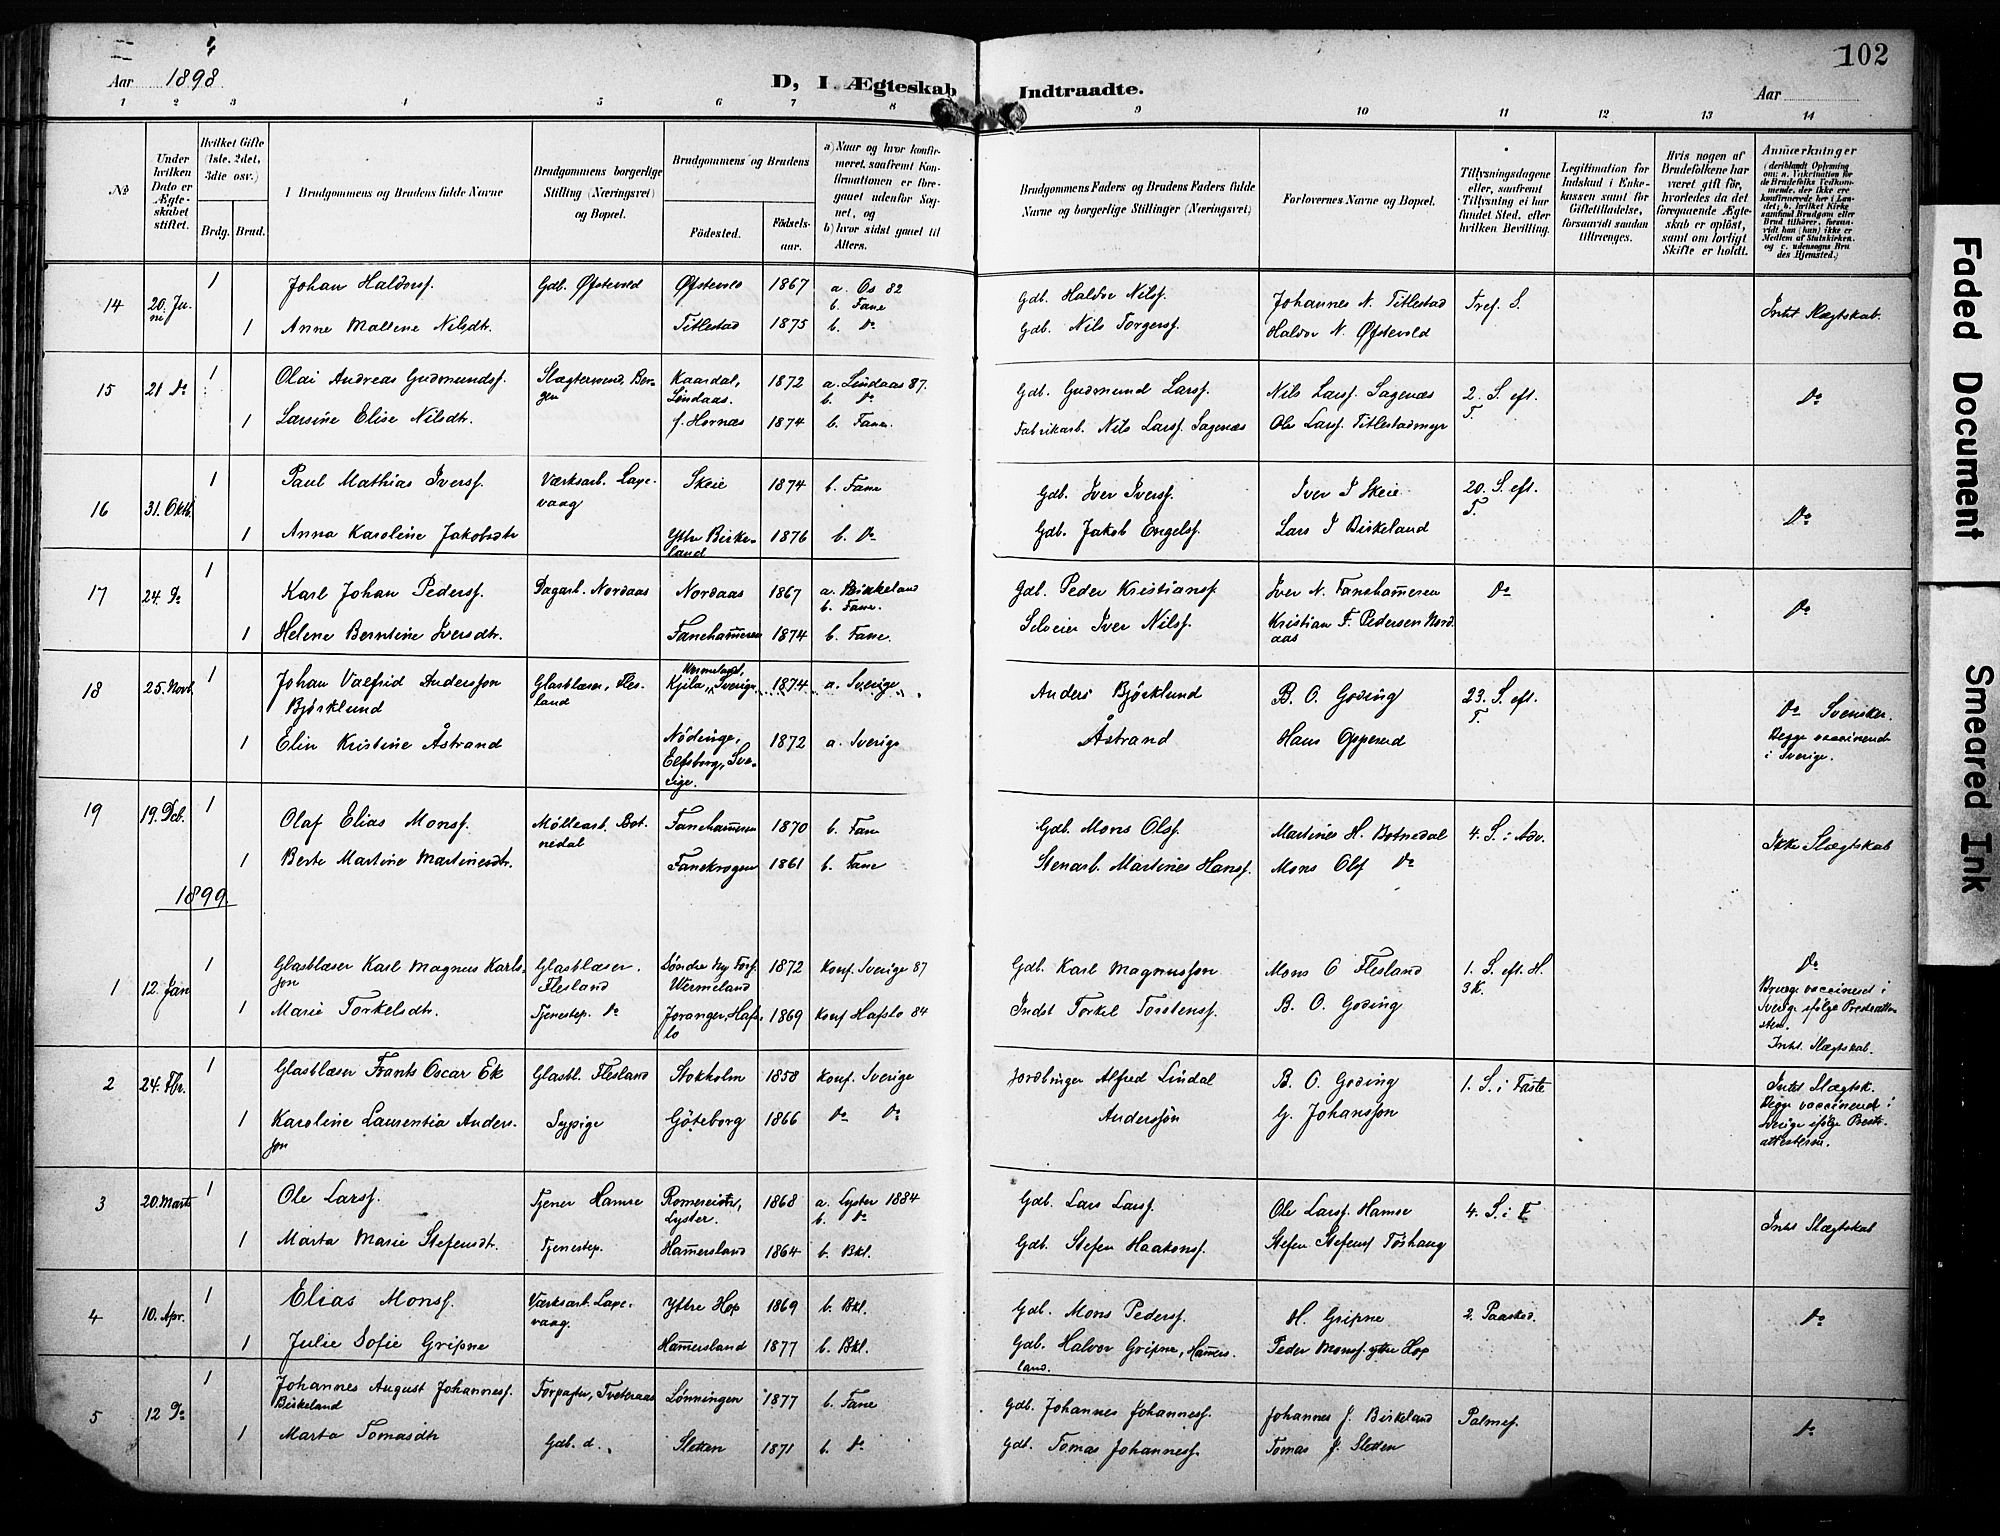 102
Aar 1898. D, I Ægteskab Indtraadte. Aar
1 2 3 4 5 6 7 8 9 10 11 12 13 14
No
Under hvilken Dato er Ægteskabet stiftet.
Hvilket Gifte (1ste, 2det, 3die osv.)
Brdg. Brud.
I Brudgommens og Brudens fulde Navne
Brudgommens borgerlige Stilling (Næringsvei) og Bopæl.
Brudgommens og Brudens
Fødested. Fødselsaar.
a) Naar og hvor konfirmeret, saafremt Konfirmationen er foregaaet udenfor Sognet, og
b) hvor sidst gaaet til Alters.
Brudgommens Faders og Brudens Faders fulde Navne og borgerlige Stillinger (Næringsvei)
Forlovernes Navne og Bopæl.
Tillysningsdagene eller, saafremt Tillysning ei har fundet Sted, efter hvilken Bevilling.
Legitimation for Indskud i Enkekassen samt for Giftetilladelse, forsaavidt saadan tiltrænges.
Hvis nogen af Brudefolkene har været gift før, hvorledes da det foregaaende Ægteskab er opløst, samt om lovligt Skifte er holdt.
Anmærkninger
14 20. Juni 1 Johan Haldorsf. Gdb. Øfstevold Øfstevold 1867 a. Os 82 b. Fane Gdb. Haldor Nilsf. Johannes N. Titlestad Tref. S. Intet Slægtskab.
1 Anne Mallene Nilsdtr. Titlestad 1875 b. Do Gdb. Nils Torgersf. Haldor N. Øfstevold
15 21 Do 1 Olai Andreas Gudmundsf. Slagtersvend, Bergen Kaardal, Lindaas. 1872 a. Lindaas 87. b. Do Gdb. Gudmund Larsf. Nils Larsf. Sagenæs 2. S. eft. T. Do
1 Larsine Elise Nilsdtr. f. Hornæs 1874 b. Fane. Fabrikarb. Nils Larsf. Sagenæs Ole Larsf. Titlestadmyr
16 31. Oktb. 1 Paul Mathias Iversf. Værksarb. Laxevaag Skeie 1874 b. Fane Gdb. Iver Iversf. Iver I Skeie 20. S. eft. T. Do
1 Anna Karoline Jakobsdtr Ytre Birkeland 1876 b. Do Gdb. Jakob Engelsf. Lars I Birkeland
17 24. Do 1 Karl Johan Pedersf. Dagarb. Nordaas Nordaas 1867 a. Birkeland b. Fane. Gdb. Peder Kristiansf Iver N. Faneham̄eren Do Do
1 Helene Berntine Iversdtr. Faneham̄eren 1874 b. Fane Selveier Iver Nilsf. Kristian F. Pedersen Nordaas
18 25. Novb. 1 Johan Valfrid Andersson Bjørklund Glasblæser, Flesland Kjila, Vermeland, Sverige 1874 a. Sverige Anders Bjørklund B. O. Goding 23. S. eft. T. Do Svensker. Begge vaccinered i Sverige.
1 Elin Kristine Åstrand Nödinge, Elfsborg, Sverige. 1872 a. Sverige Åstrand Hans Opperud
19 19. Deb. 1 Olaf Elias Monsf. Mølleart. Botnedal Faneham̄eren 1870 b. Fane Gdb. Mons Olsf. Martines H. Botnedal 4. S. i Adv. Ikke Slægtskab
1 Berte Martine Martinesdtr. Fanekrogen 1861 b. Fane Stenarb. Martines Hansf. Mons Olsf Do
1899.
1 12. Jan 1 Glasblæser Karl Magnus Karlsson Glasblæser. Flesland Söndre Ny Fors. Wermeland 1872 Konf. Sverige 87 Gdb. Karl Magnusson Mons O Flesland 1. S. eft. H. 3K. Do Brudg. vaccinered i Sverige ifölge Presteattesten. Intet Slægtskab.
1 Marie Torkelsdtr. Tjenestep. Do Joranger, Hafslo 1869 Konf Hafslo 84 Indst Torkel Torstensf. B. O. Goding
2 24. Fbr. 1 Glasblæser Frants Oscar Ek Glasbl. Flesland Stokholm 1858 Konf. Sverige Jordbruger Alfred Lindal B. O. Goding 1. S. i Faste Intet Slægtsk. Begge vaccinered i Sverige ifölge Presteattesterne.
1 Karoline Laurentia Andersson Sypige Göteborg 1866 Do Do Andersson G. Johansson
3 20. Marts 1 Ole Larsf. Tjener Hamre Lyster. 1868 a. Lyster 1884 b. Do Gdb. Lars Larsf. Ole Larsf. Hamre 4. S. i F Intet Slægtskab
1 Marta Marie Stefensdtr. Tjenestep. Ham̄ersland 1864 b. Bkl. Gdb. Stefen Haakonsf. Stefen Stefensf Töshaug
4 10. Apr. 1 Elias Monsf. Værksarb. Laxevaag. Ytre Hop 1869 b. Bkl. Gdb. Mons Pedersf. H. Gripne 2. Paasked. Do
1 Julie Sofie Gripne Ham̄ersland 1877 b. Bkl. Gdb. Halvor Gripne, Ham̄ersland. Peder Monsf. ytre Hop
5 12 Do 1 Johannes August Johannesf. Birkeland Forpagter, Tveteraas Lønningen 1877 b. Fane Gdb. Johannes Johannesf. Johannes J. Birkeland Palmes. Do
1 Marta Tomasdtr Gdb. d. Sletten 1871 b. Do Gdb. Tomas Johannesf. Tomas J. Sletten
Faded Document
Smeared Ink